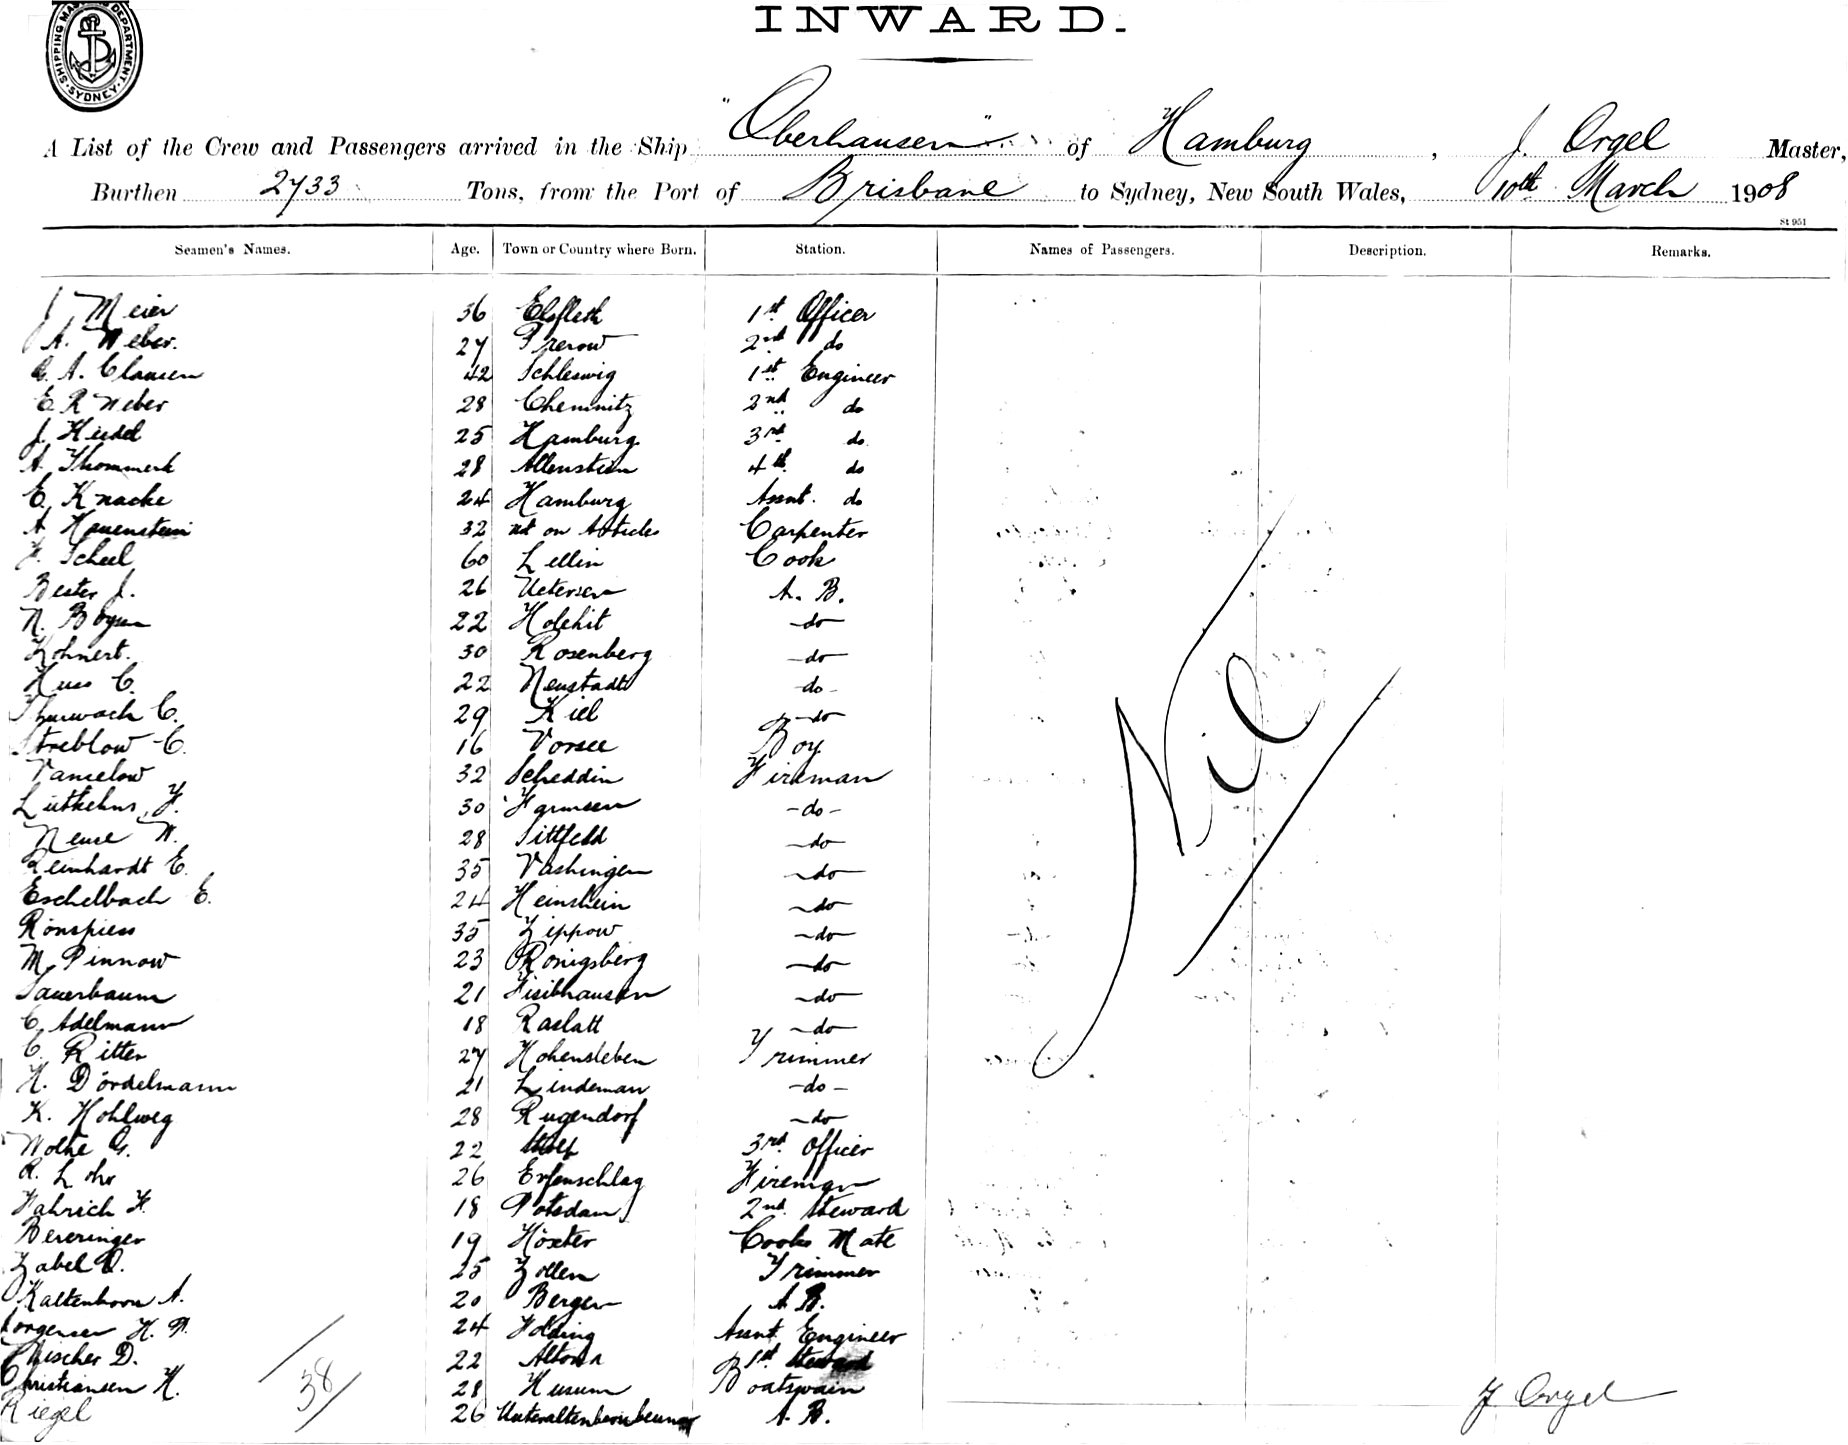 SHIPPING MASTERS DEPARTMENT · SYDNEY ·
INWARD.
A List of the Crew and Passengers arrived in the Ship "Oberhausen" of Hamburg, J. Orgel Master,
Burthen 2733 Tons, from the Port of Brisbane to Sydney, New South Wales, 10th March 1908
St 951
Seamen's Names. Age. Town or Country where Born. Station. Names of Passengers. Description. Remarks.
J. Meier 36 Elsfleth 1st Officer
A. Weber. 27 Prerow 2nd do
G. A. Clausen 42 Schleswig 1st Engineer
E. R Weber 28 Chemnitz 2nd do
J. Heidel 25 Hamburg 3rd do
A. Thommek 28 Allenstein 4th do
E. Knacke 24 Hamburg Assnt. do
A. Hauenstein 32 not on Articles Carpenter
F. Scheel 60 Lellin Cook
Bester J. 26 Uetersen A. B.
N. Boysen 22 Holehit do
Kohnert. 30 Rosenberg do
Huss C. 22 Neustadt do
C. 29 Kiel do
Streblow C. 16 Vorsee Boy
Vanselow 32 Scheddin Fireman
Lütkehus F. 30 Farmsen do
Neuse W. 28 Sittfeld do
Reinhardt E. 35 Vashingen do
Eschelbach E. 24 Heinstein do
Rönspiess 35 Zippow do
M. Pinnow 23 Königsberg do
Sauerbaum 21 do
C. Adelmann 18 Raslatt do
C. Ritter 27 Hohensleben Trimmer
H. Dördelmann 21 Lindeman do
K. Kohlweg 28 Rugendorf do
Wolke G. 22 3rd Officer
R. Lohr 26 Erfenschlag Fireman
Fahrich F. 18 Potsdam 2nd Steward
Bereringer 19 Höxter Cooks Mate
Zabel O. 25 Zollen Trimmer
Kaltenborn A. 20 Bergen A B.
Jorgensen H. P. 24 Folding Assnt. Engineer
Discher D. 22 Altona 1st Steward
Christiansen H. 28 Husum Boatswain
Riegel 26 A. B.
Nil
38
J Orgel